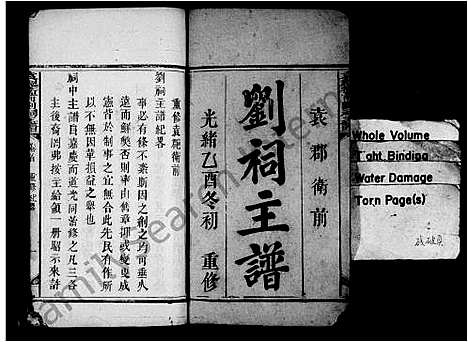 袁郡衛前
劉祠主譜
光緒乙酉冬初
重修
重修袁郡衛前
劉祠主譜紀畧
事必有條不紊斯因之創之均可垂久
遠而鮮獘否則率由舊章抑或變更成
憲皆於制事之宜無合此先民有作所
以不無因革損益之舉也
祠中主譜自嘉慶而道光同治修之凡三各
主後裔罔弗按主給領一冊昭示來許
Whole Volume
Tight Binding
Water Damage
Torn Page(s)